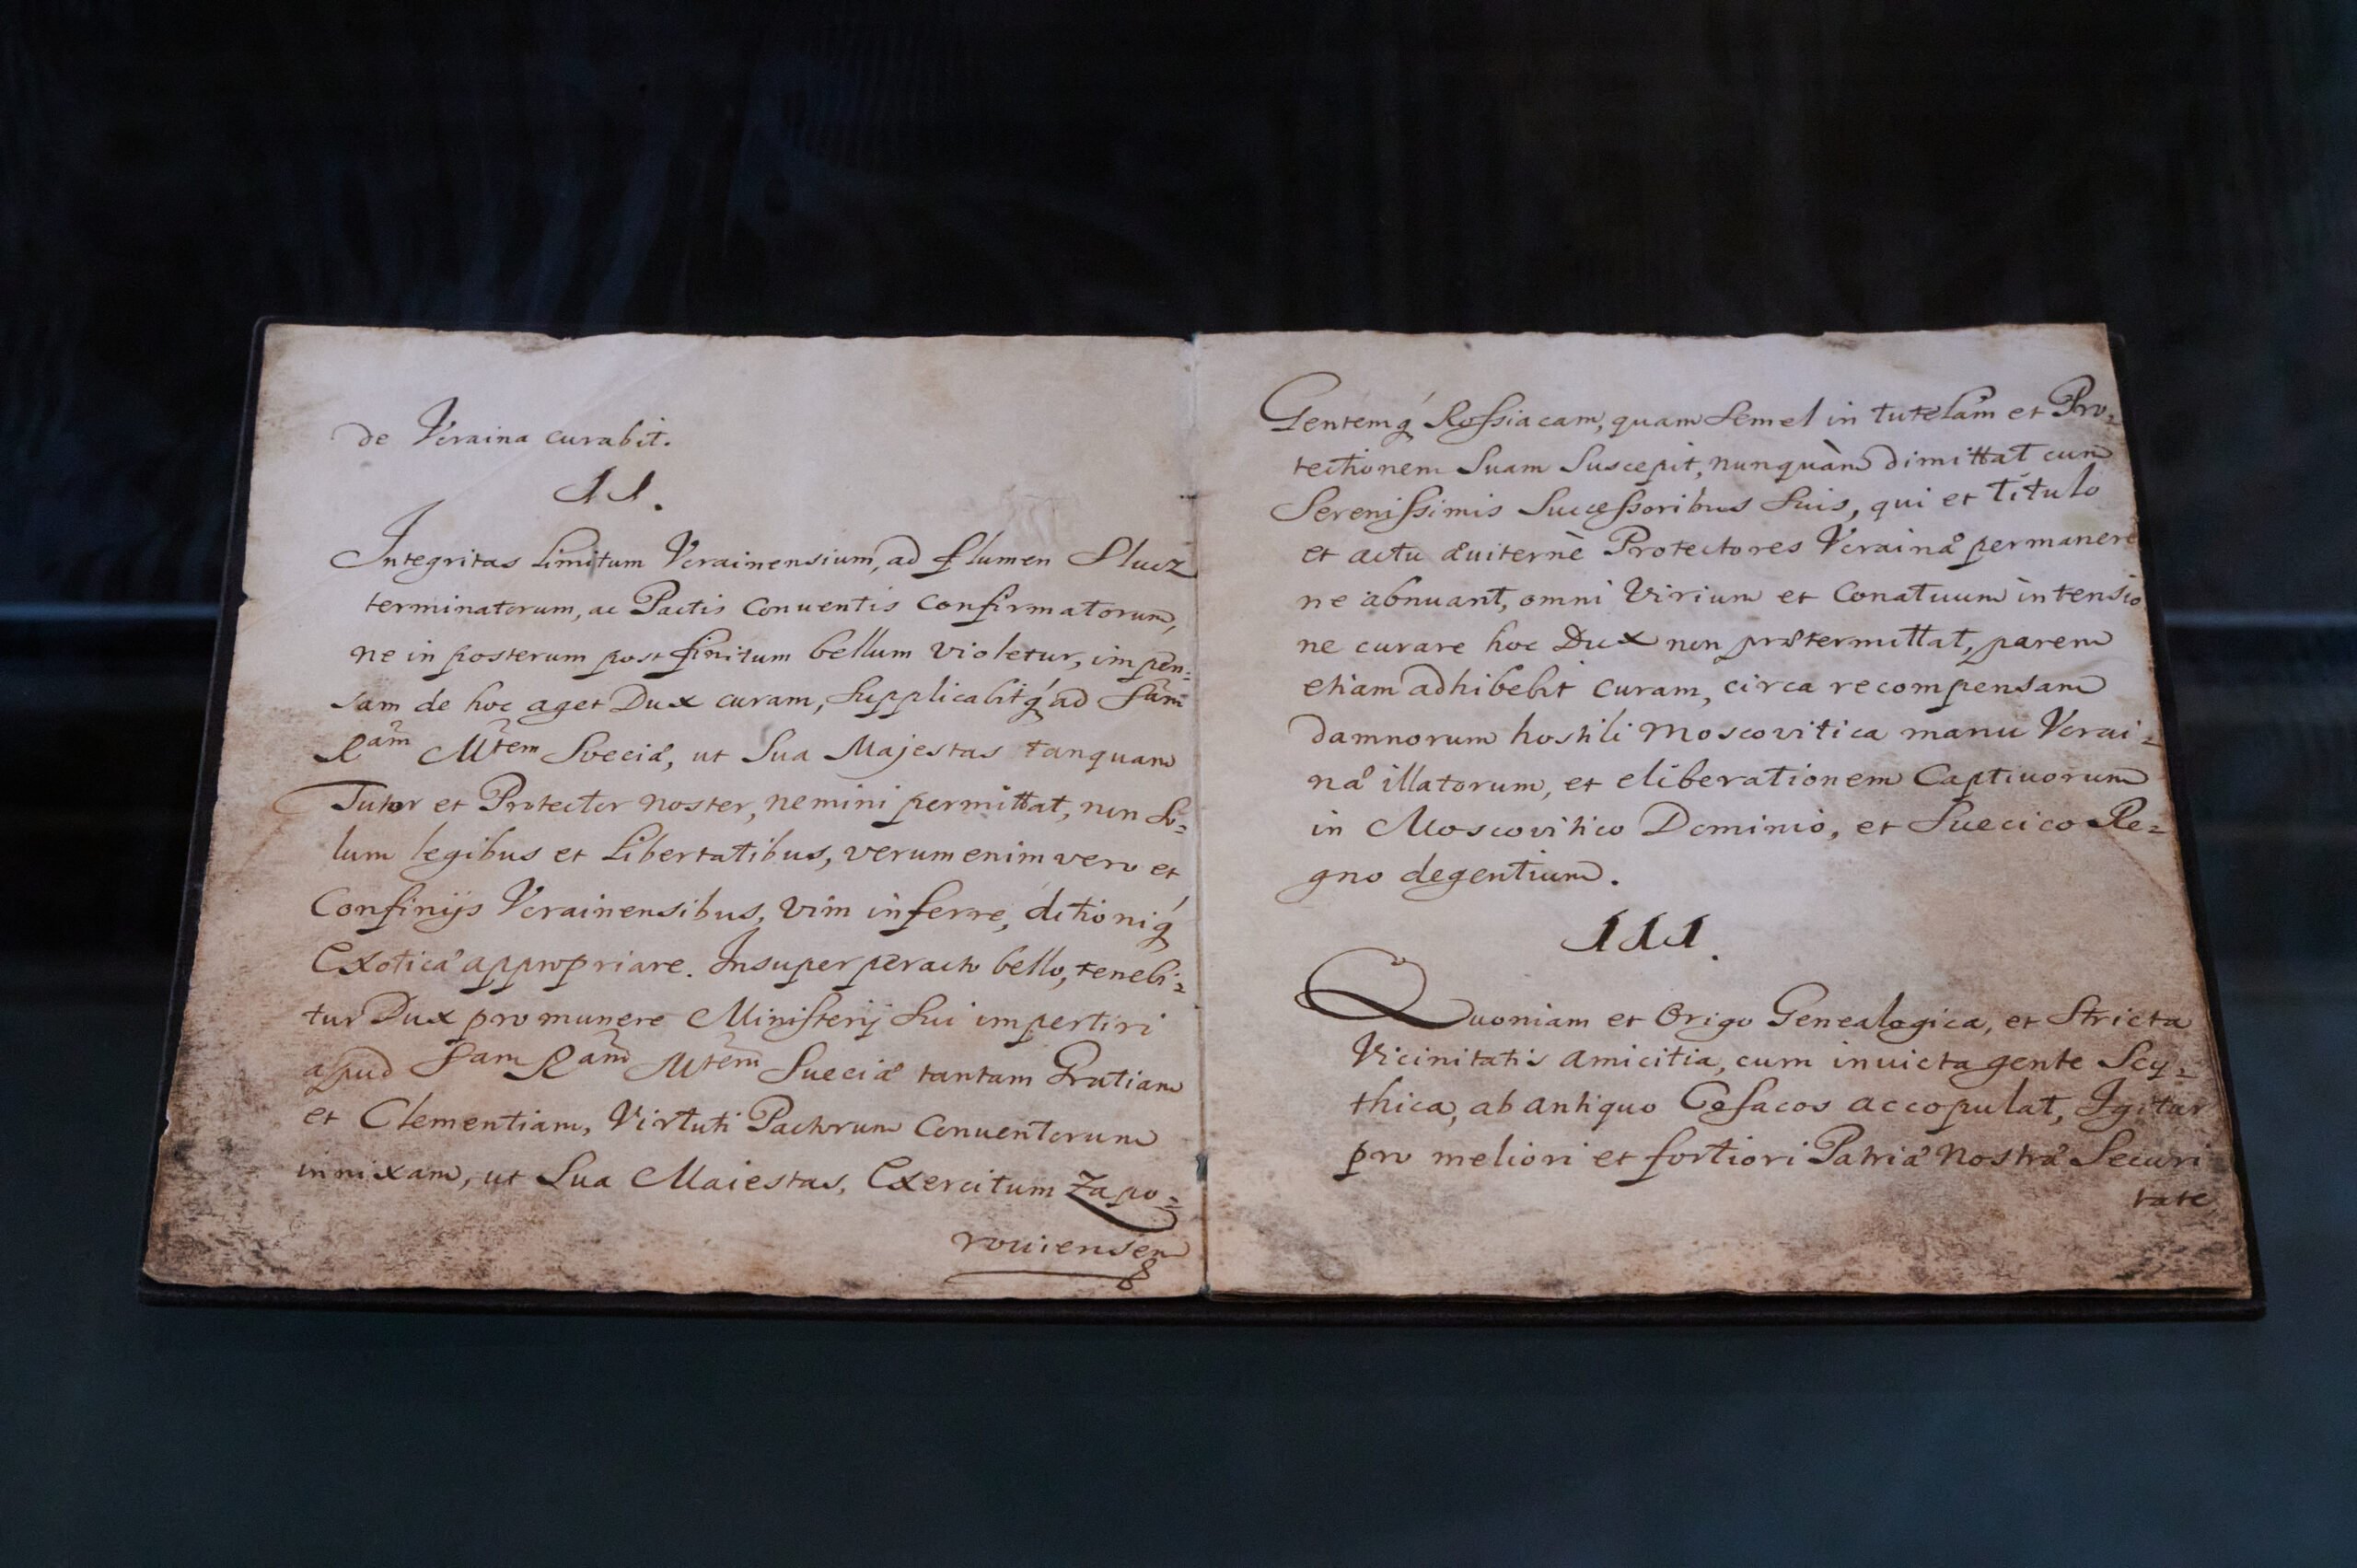 de Vcraina curabit.
II.
Integritas limitum Vcrainensium, ad flumen Slucz
terminatorum, ac Pactis Conuentis confirmatorum,
ne in posterum post finitum bellum violetur, impen=
sam de hoc aget Dux curam, supplicabitq́ ad Sam
Ram Mtem Sveciæ, ut Sua Majestas tanquam
Tutor et Protector noster, nemini permittat, non so=
lum legibus et Libertatibus, verum enim vero et
Confinijs Vcrainensibus, vim inferre, ditioniq́
Exoticæ appropriare. Insuper peracto bello, tenebi=
tur Dux pro munere Ministerij sui impertiri
apud Sam Ram Mtem Sueciæ tantam Gratiam
et Clementiam, Virtuti Pactorum Conuentorum
innixam, ut Sua Maiestas, Exercitum Zapo=
rouiensem
Gentemq́ Rossiacam, quam semel in tutelam et Pro=
tectionem Suam Suscepit, nunquàm dimittat cum
Serenissimis Successoribus suis, qui et Titulo
et actu æuiternè Protectores Vcrainæ permanere
ne abnuant, omni Virium et Conatuum intensio
ne curare hoc Dux non prætermittat, parem
etiam adhibebit curam, circa recompensam
damnorum hostili Moscovitica manu Vcrai=
næ illatorum, et eliberationem Captiuorum
in Moscovitico Dominio, et Suecico Re=
gno degentium.
III.
Quoniam et Origo Genealogica, et Stricta
Vicinitatis amicitia, cum inuicta gente Scy=
thica, ab antiquo Cosacos accopulat, Igitur
pro meliori et fortiori Patriæ Nostræ Securi
tate